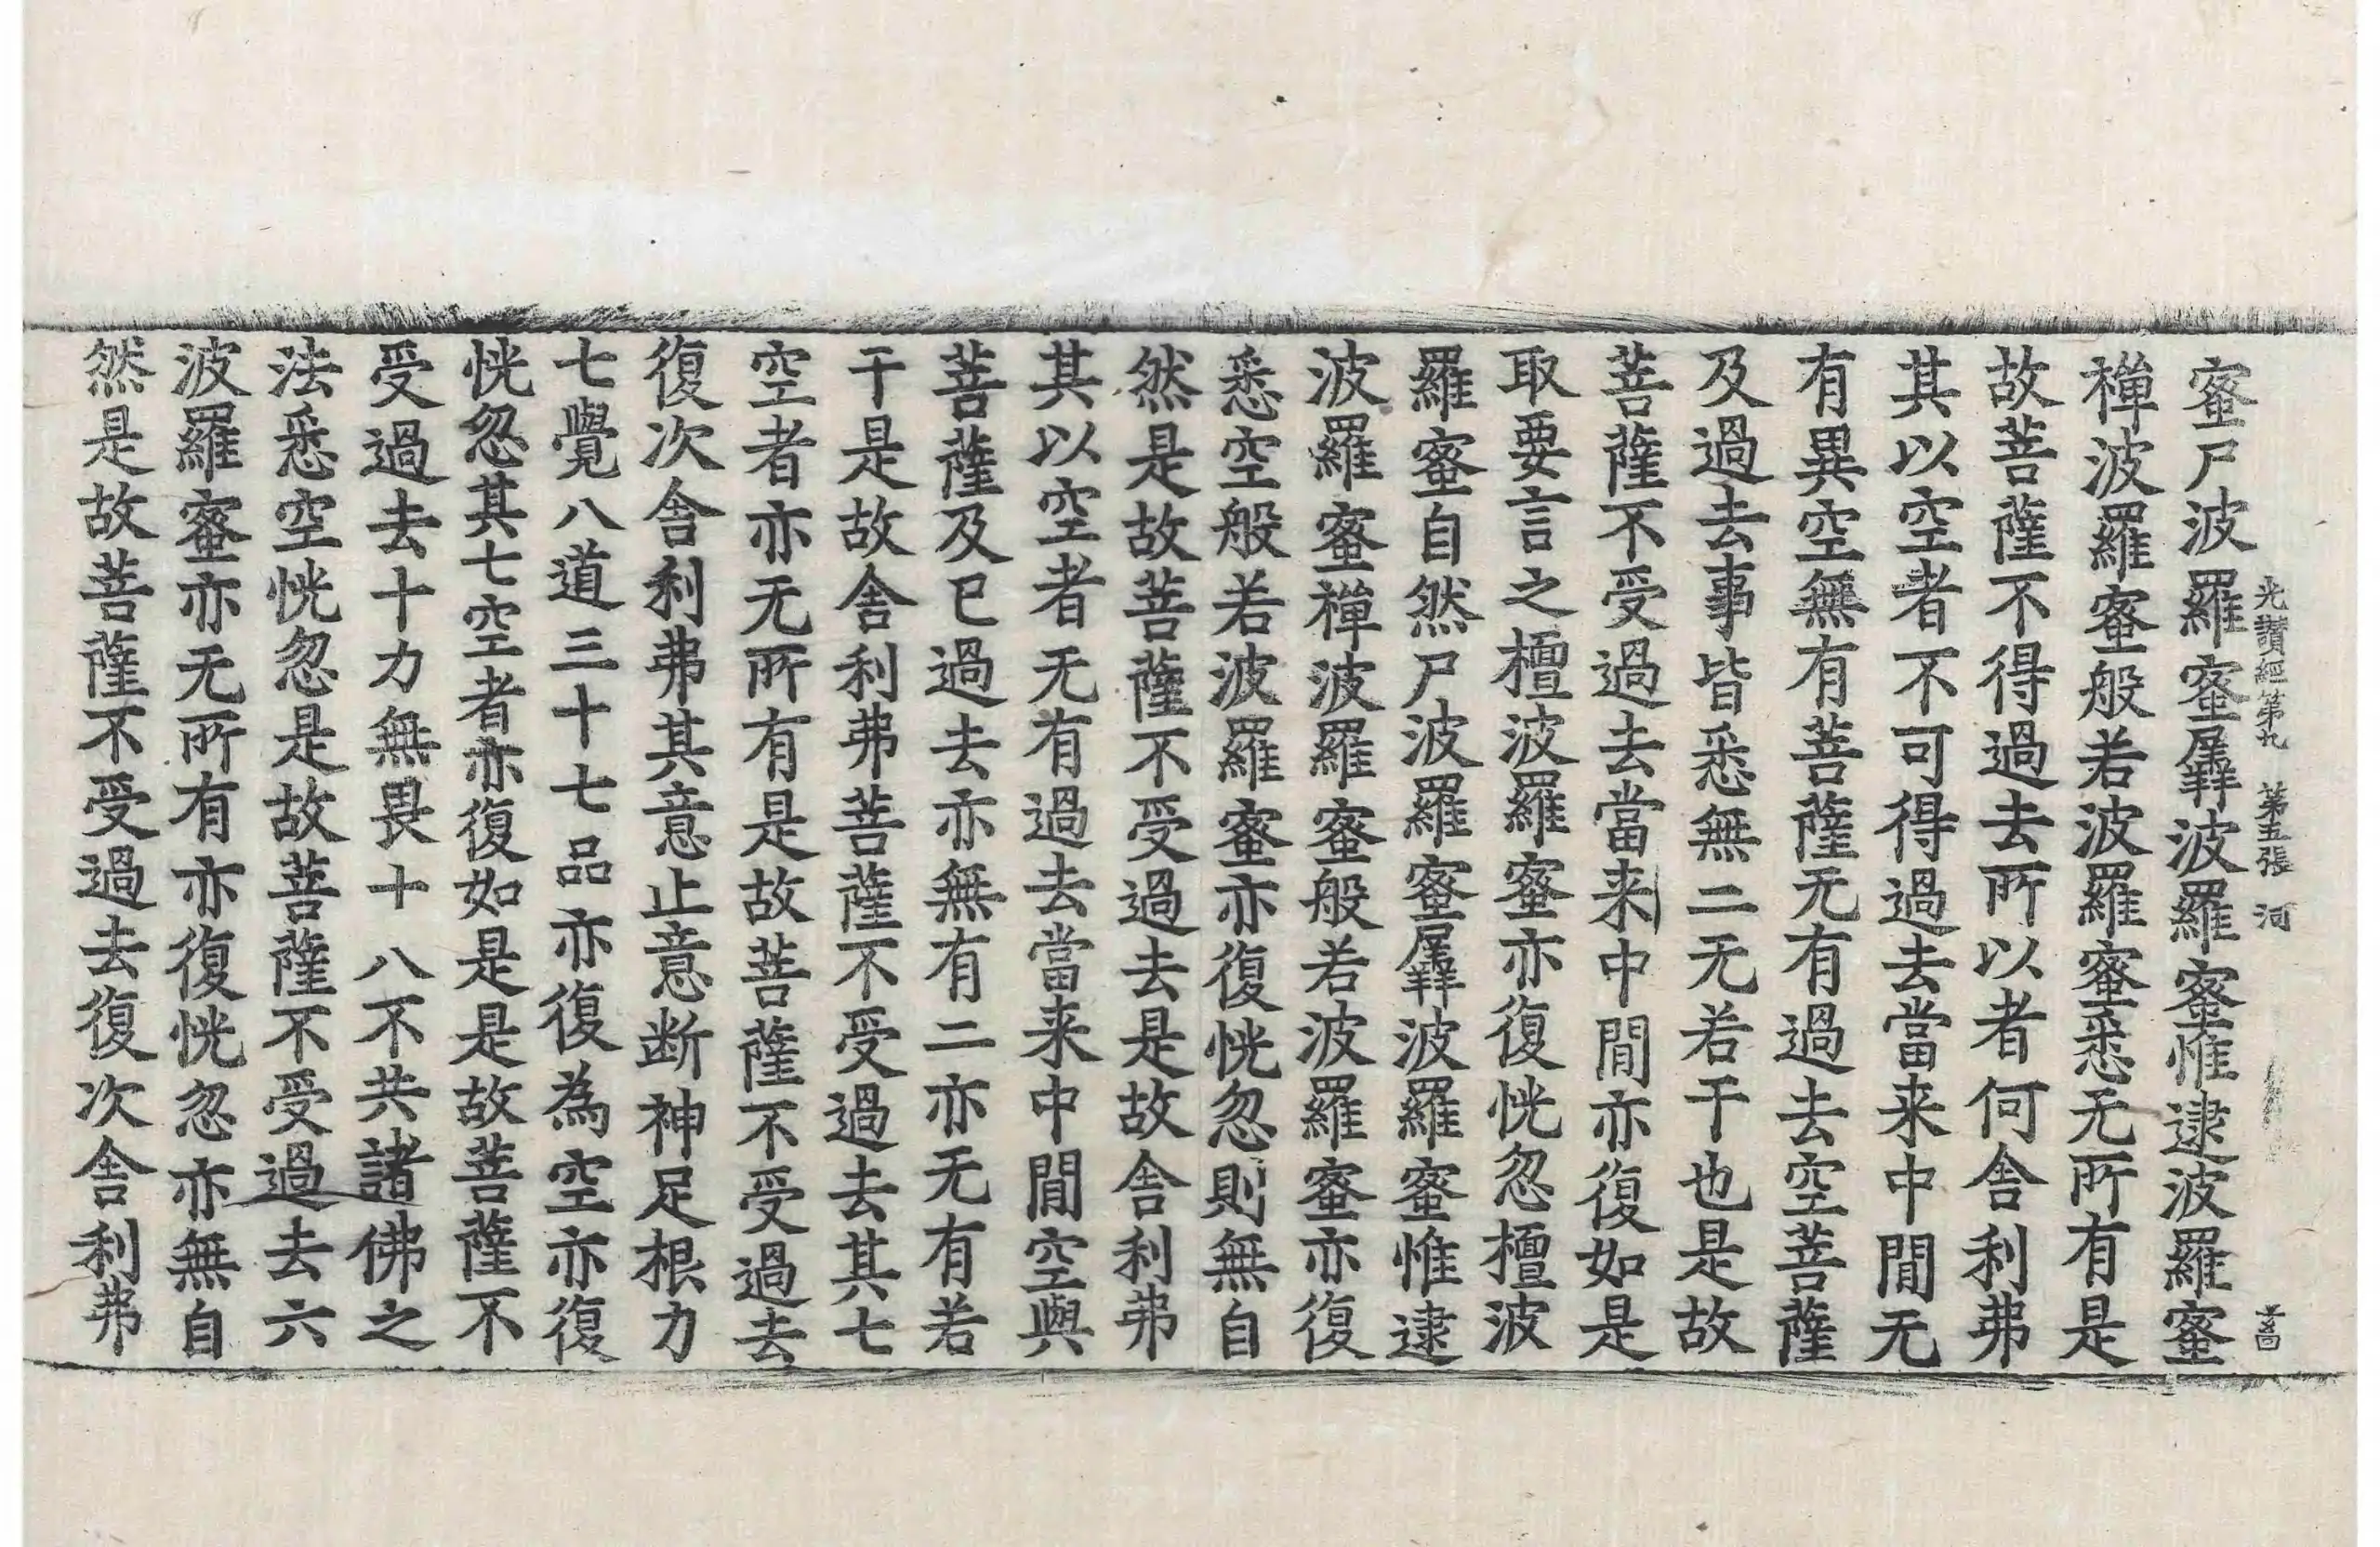 光讃經第九　第五張　河
蜜尸波羅蜜羼波羅蜜惟逮波羅蜜
禪波羅蜜般若波羅蜜悉无所有是
故菩薩不得過去所以者何舍利弗
其以空者不可得過去當来中間无
有異空無有菩薩无有過去空菩薩
及過去事皆悉無二无若干也是故
菩薩不受過去當来中間亦復如是
取要言之檀波羅蜜亦復恍忽檀波
羅蜜自然尸波羅蜜羼波羅蜜惟逮
波羅蜜禪波羅蜜般若波羅蜜亦復
悉空般若波羅蜜亦復恍忽則無自
然是故菩薩不受過去是故舍利弗
其以空者无有過去當来中間空與
菩薩及已過去亦無有二亦无有若
干是故舍利弗菩薩不受過去其七
空者亦无所有是故菩薩不受過去
復次舍利弗其意止意断神足根力
七覺八道三十七品亦復為空亦復
恍忽其七空者亦復如是是故菩薩不
受過去十力無畏十八不共諸佛之
法悉空恍忽是故菩薩不受過去六
波羅蜜亦无所有亦復恍忽亦無自
然是故菩薩不受過去復次舍利弗